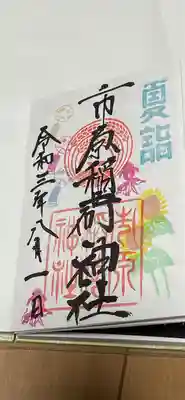 夏詣
市原稲荷神社
令和三年八月一日